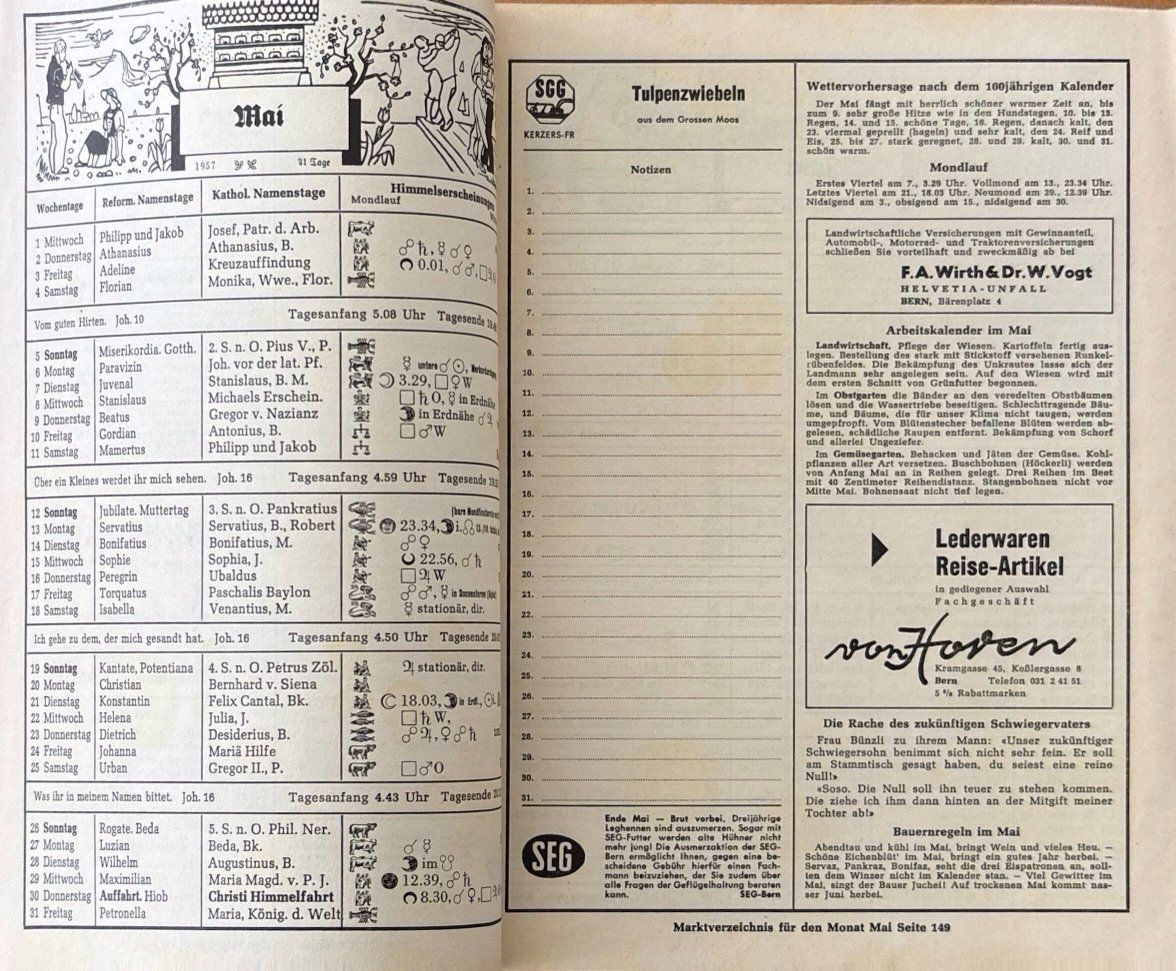 Mai
1957 31 Tage
Wochentage Reform. Namenstage Kathol. Namenstage Himmelserscheinungen
Mondlauf
1 Mittwoch Philipp und Jakob Josef, Patr. d. Arb.
2 Donnerstag Athanasius Athanasius, B. ☍♄, ☿☌♀
3 Freitag Adeline Kreuzauffindung 0.01, ☌♂,
4 Samstag Florian Monika, Wwe., Flor.
Vom guten Hirten. Joh. 10 Tagesanfang 5.08 Uhr Tagesende
5 Sonntag Miserikordia. Gotth. 2. S. n. O. Pius V., P.
6 Montag Paravizin Joh. vor der lat. Pf. ☿ untere ☌☉,
7 Dienstag Juvenal Stanislaus, B. M. ☽ 3.29, □♀W
8 Mittwoch Stanislaus Michaels Erschein. □♄O, ☿ in Erdnähe
9 Donnerstag Beatus Gregor v. Nazianz in Erdnähe
10 Freitag Gordian Antonius, B. □♂W
11 Samstag Mamertus Philipp und Jakob
Über ein Kleines werdet ihr mich sehen. Joh. 16 Tagesanfang 4.59 Uhr Tagesende
12 Sonntag Jubilate. Muttertag 3. S. n. O. Pankratius
13 Montag Servatius Servatius, B., Robert 23.34,
14 Dienstag Bonifatius Bonifatius, M. ☍♀
15 Mittwoch Sophie Sophia, J. 22.56, ☌♄
16 Donnerstag Peregrin Ubaldus □♃W
17 Freitag Torquatus Paschalis Baylon ☍♂, ☿ in Sonnenferne
18 Samstag Isabella Venantius, M. ☿ stationär, dir.
Ich gehe zu dem, der mich gesandt hat. Joh. 16 Tagesanfang 4.50 Uhr Tagesende
19 Sonntag Kantate, Potentiana 4. S. n. O. Petrus Zöl. ♃ stationär, dir.
20 Montag Christian Bernhard v. Siena
21 Dienstag Konstantin Felix Cantal, Bk. ☾ 18.03,
22 Mittwoch Helena Julia, J. □♄W,
23 Donnerstag Dietrich Desiderius, B. ☍♃, ♀☍♄
24 Freitag Johanna Mariä Hilfe
25 Samstag Urban Gregor II., P. □♂O
Was ihr in meinem Namen bittet. Joh. 16 Tagesanfang 4.43 Uhr Tagesende
26 Sonntag Rogate. Beda 5. S. n. O. Phil. Ner.
27 Montag Luzian Beda, Bk. ☌☿
28 Dienstag Wilhelm Augustinus, B. im ☋
29 Mittwoch Maximilian Maria Magd. v. P. J. 12.39, ☍♄
30 Donnerstag Auffahrt. Hiob Christi Himmelfahrt 8.30, ☌♀,
31 Freitag Petronella Maria, König. d. Welt
SGG
KERZERS-FR
Tulpenzwiebeln
aus dem Grossen Moos
Notizen
1.
2.
3.
4.
5.
6.
7.
8.
9.
10.
11.
12.
13.
14.
15.
16.
17.
18.
19.
20.
21.
22.
23.
24.
25.
26.
27.
28.
29.
30.
31.
SEG
Ende Mai — Brut vorbei. Dreijährige
Leghennen sind auszumerzen. Sogar mit
SEG-Futter werden alte Hühner nicht
mehr jung! Die Ausmerzaktion der SEG-
Bern ermöglicht Ihnen, gegen eine be-
scheidene Gebühr hierfür einen Fach-
mann beizuziehen, der Sie zudem über
alle Fragen der Geflügelhaltung beraten
kann. SEG-Bern
Wettervorhersage nach dem 100jährigen Kalender
Der Mai fängt mit herrlich schöner warmer Zeit an, bis
zum 9. sehr große Hitze wie in den Hundstagen, 10. bis 13.
Regen, 14. und 15. schöne Tage, 16. Regen, danach kalt, den
23. viermal geprellt (hageln) und sehr kalt, den 24. Reif und
Eis, 25. bis 27. stark geregnet, 28. und 29. kalt, 30. und 31.
schön warm.
Mondlauf
Erstes Viertel am 7., 3.29 Uhr. Vollmond am 13., 23.34 Uhr.
Letztes Viertel am 21., 18.03 Uhr. Neumond am 29., 12.39 Uhr.
Nidsigend am 3., obsigend am 15., nidsigend am 30.
Landwirtschaftliche Versicherungen mit Gewinnanteil,
Automobil-, Motorrad- und Traktorenversicherungen
schließen Sie vorteilhaft und zweckmäßig ab bei
F.A. Wirth & Dr. W. Vogt
HELVETIA-UNFALL
BERN, Bärenplatz 4
Arbeitskalender im Mai
Landwirtschaft. Pflege der Wiesen. Kartoffeln fertig aus-
legen. Bestellung des stark mit Stickstoff versehenen Runkel-
rübenfeldes. Die Bekämpfung des Unkrautes lasse sich der
Landmann sehr angelegen sein. Auf den Wiesen wird mit
dem ersten Schnitt von Grünfutter begonnen.
Im Obstgarten die Bänder an den veredelten Obstbäumen
lösen und die Wassertriebe beseitigen. Schlechttragende Bäu-
me, und Bäume, die für unser Klima nicht taugen, werden
umgepfropft. Vom Blütenstecher befallene Blüten werden ab-
gelesen, schädliche Raupen entfernt. Bekämpfung von Schorf
und allerlei Ungeziefer.
Im Gemüsegarten. Behacken und Jäten der Gemüse. Kohl-
pflanzen aller Art versetzen. Buschbohnen (Höckerli) werden
von Anfang Mai an in Reihen gelegt. Drei Reihen im Beet
mit 40 Zentimeter Reihendistanz. Stangenbohnen nicht vor
Mitte Mai. Bohnensaat nicht tief legen.
Lederwaren
Reise-Artikel
in gediegener Auswahl
Fachgeschäft
von Hoven
Kramgasse 45, Keßlergasse 8
Bern Telefon 031 2 41 51
5 % Rabattmarken
Die Rache des zukünftigen Schwiegervaters
Frau Bünzli zu ihrem Mann: «Unser zukünftiger
Schwiegersohn benimmt sich nicht sehr fein. Er soll
am Stammtisch gesagt haben, du seiest eine reine
Null!»
«Soso. Die Null soll ihn teuer zu stehen kommen.
Die ziehe ich ihm dann hinten an der Mitgift meiner
Tochter ab!»
Bauernregeln im Mai
Abendtau und kühl im Mai, bringt Wein und vieles Heu. —
Schöne Eichenblüt' im Mai, bringt ein gutes Jahr herbei. —
Servaz, Pankraz, Bonifaz, seht die drei Eispatronen an, soll-
ten dem Winzer nicht im Kalender stan. — Viel Gewitter im
Mai, singt der Bauer Juchei! Auf trockenen Mai kommt nas-
ser Juni herbei.
Marktverzeichnis für den Monat Mai Seite 149